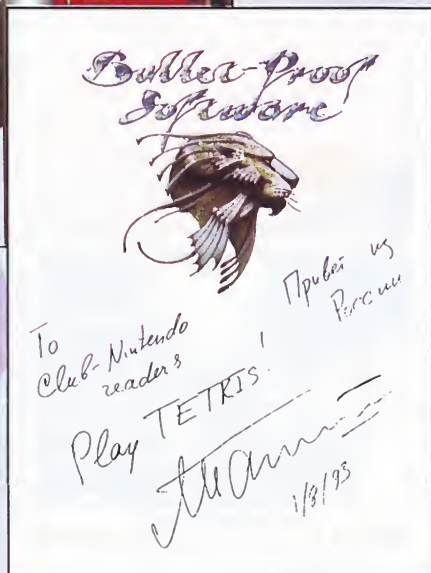 Bullet-Proof
Software
To
Club-Nintendo
readers
Привет из
России
Play TETRIS!
1/8/93